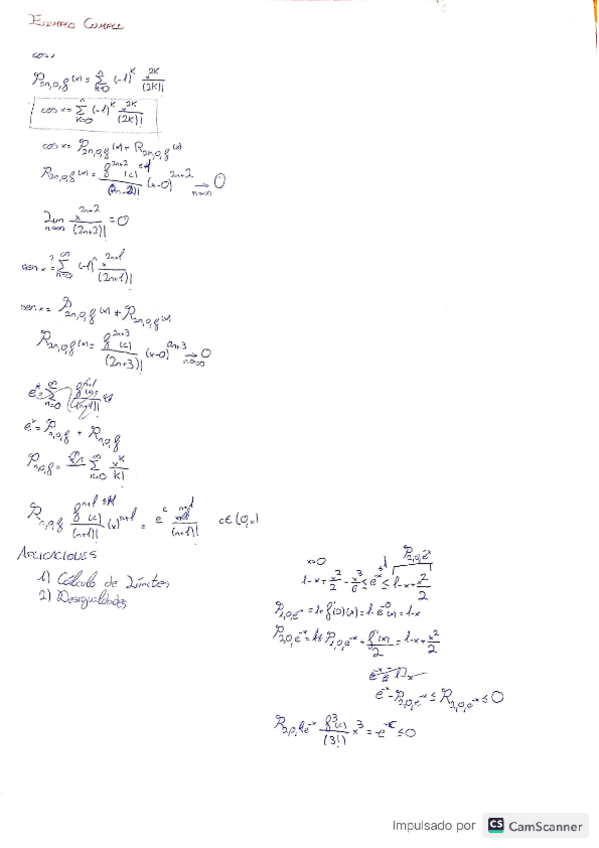 EJEMPLO
cos x
P₂ₙ,₀,f(x) = Σₖ₌₀ⁿ (-1)ᵏ x²ᵏ/(2k)!
cos x = Σₖ₌₀ⁿ (-1)ᵏ x²ᵏ/(2k)!
cos x = P₂ₙ,₀,f(x) + R₂ₙ,₀,f(x)
R₂ₙ,₀,f(x) = f²ⁿ⁺²(c)/(2n+2)! (x-0)²ⁿ⁺² → 0 n→∞
Lim n→∞ x²ⁿ⁺²/(2n+2)! = 0
sen x =? Σₙ₌₀^∞ (-1)ⁿ x²ⁿ⁺¹/(2n+1)!
sen x = P₂ₙ,₀,f(x) + R₂ₙ,₀,f(x)
R₂ₙ,₀,f(x) = f²ⁿ⁺³(c)/(2n+3)! (x-0)²ⁿ⁺³ → 0 n→∞
eˣ = Σₙ₌₀^∞
eˣ = Pₙ,₀,f + Rₙ,₀,f
Pₙ,₀,f = Σₖ₌₀^∞ xᵏ/k!
Rₙ,₀,f fⁿ⁺¹(c)/(n+1)! (x)ⁿ⁺¹ = eᶜ xⁿ⁺¹/(n+1)! c∈(0,x)
APLICACIONES
1) Cálculo de Límites
2) Desigualdades
x>0 P₂,₀,e⁻ˣ
1-x+x²/2 - x³/6 ≤ e⁻ˣ ≤ 1-x+x²/2
P₁,₀,e⁻ˣ = 1+f'(0)(x) = 1-e⁻⁰(x) = 1-x
P₂,₀,e⁻ˣ = P₁,₀,e⁻ˣ + /2 = 1-x+x²/2
e⁻ˣ - P₂,₀,e⁻ˣ ≤ R₂,₀,e⁻ˣ ≤ 0
R₂,₀,e⁻ˣ f³(c)/(3!) x³ = -e⁻ᶜ ≤ 0
Impulsado por CS CamScanner